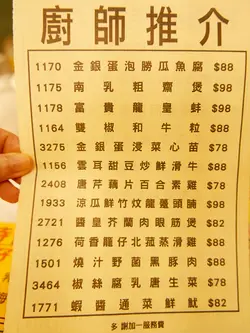 廚師推介
1170 金銀蛋泡勝瓜魚腐 $88
1175 南乳粗齋煲 $98
1178 富貴龍皇蚌 $98
1164 雙椒和牛粒 $88
3275 金銀蛋浸菜心苗 $78
1156 雲耳甜豆炒鮮滑牛 $88
2408 唐芹藕片百合素雞 $78
1933 涼瓜鮮竹炆龍躉頭腩 $98
2721 醬皇芥蘭肉眼筋煲 $82
1276 荷香龍仔北菰蒸滑雞 $88
1501 燒汁野菌黑豚肉 $88
3464 椒絲腐乳唐生菜 $78
1771 蝦醬通菜鮮魷 $82
多謝加一服務費